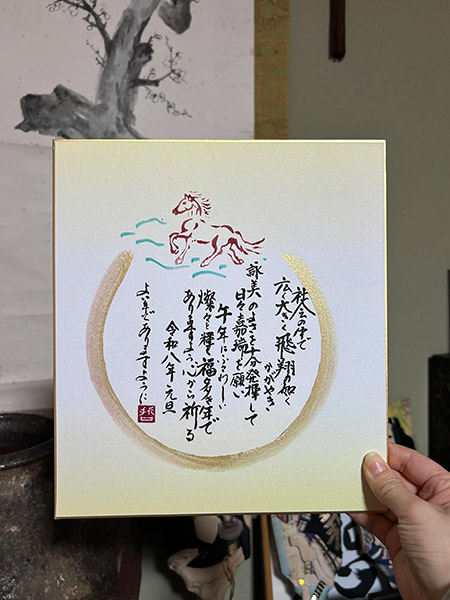 社会の中で
広く大きく飛翔の如く
かがやき
詠美のよさを十分発揮して
日々嘉瑞を願い
午年にふさわしい
燦々と輝く福多き年で
ありますよう心から祈る
令和八年 元旦
ありますように